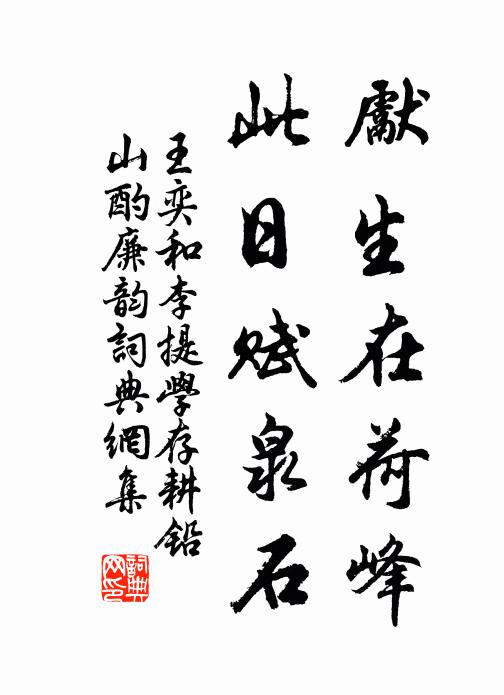 獻生在荷峰
此日賦泉石
王奕和李提學存耕鉛
山酌廉韵詞典網集
詞典网印